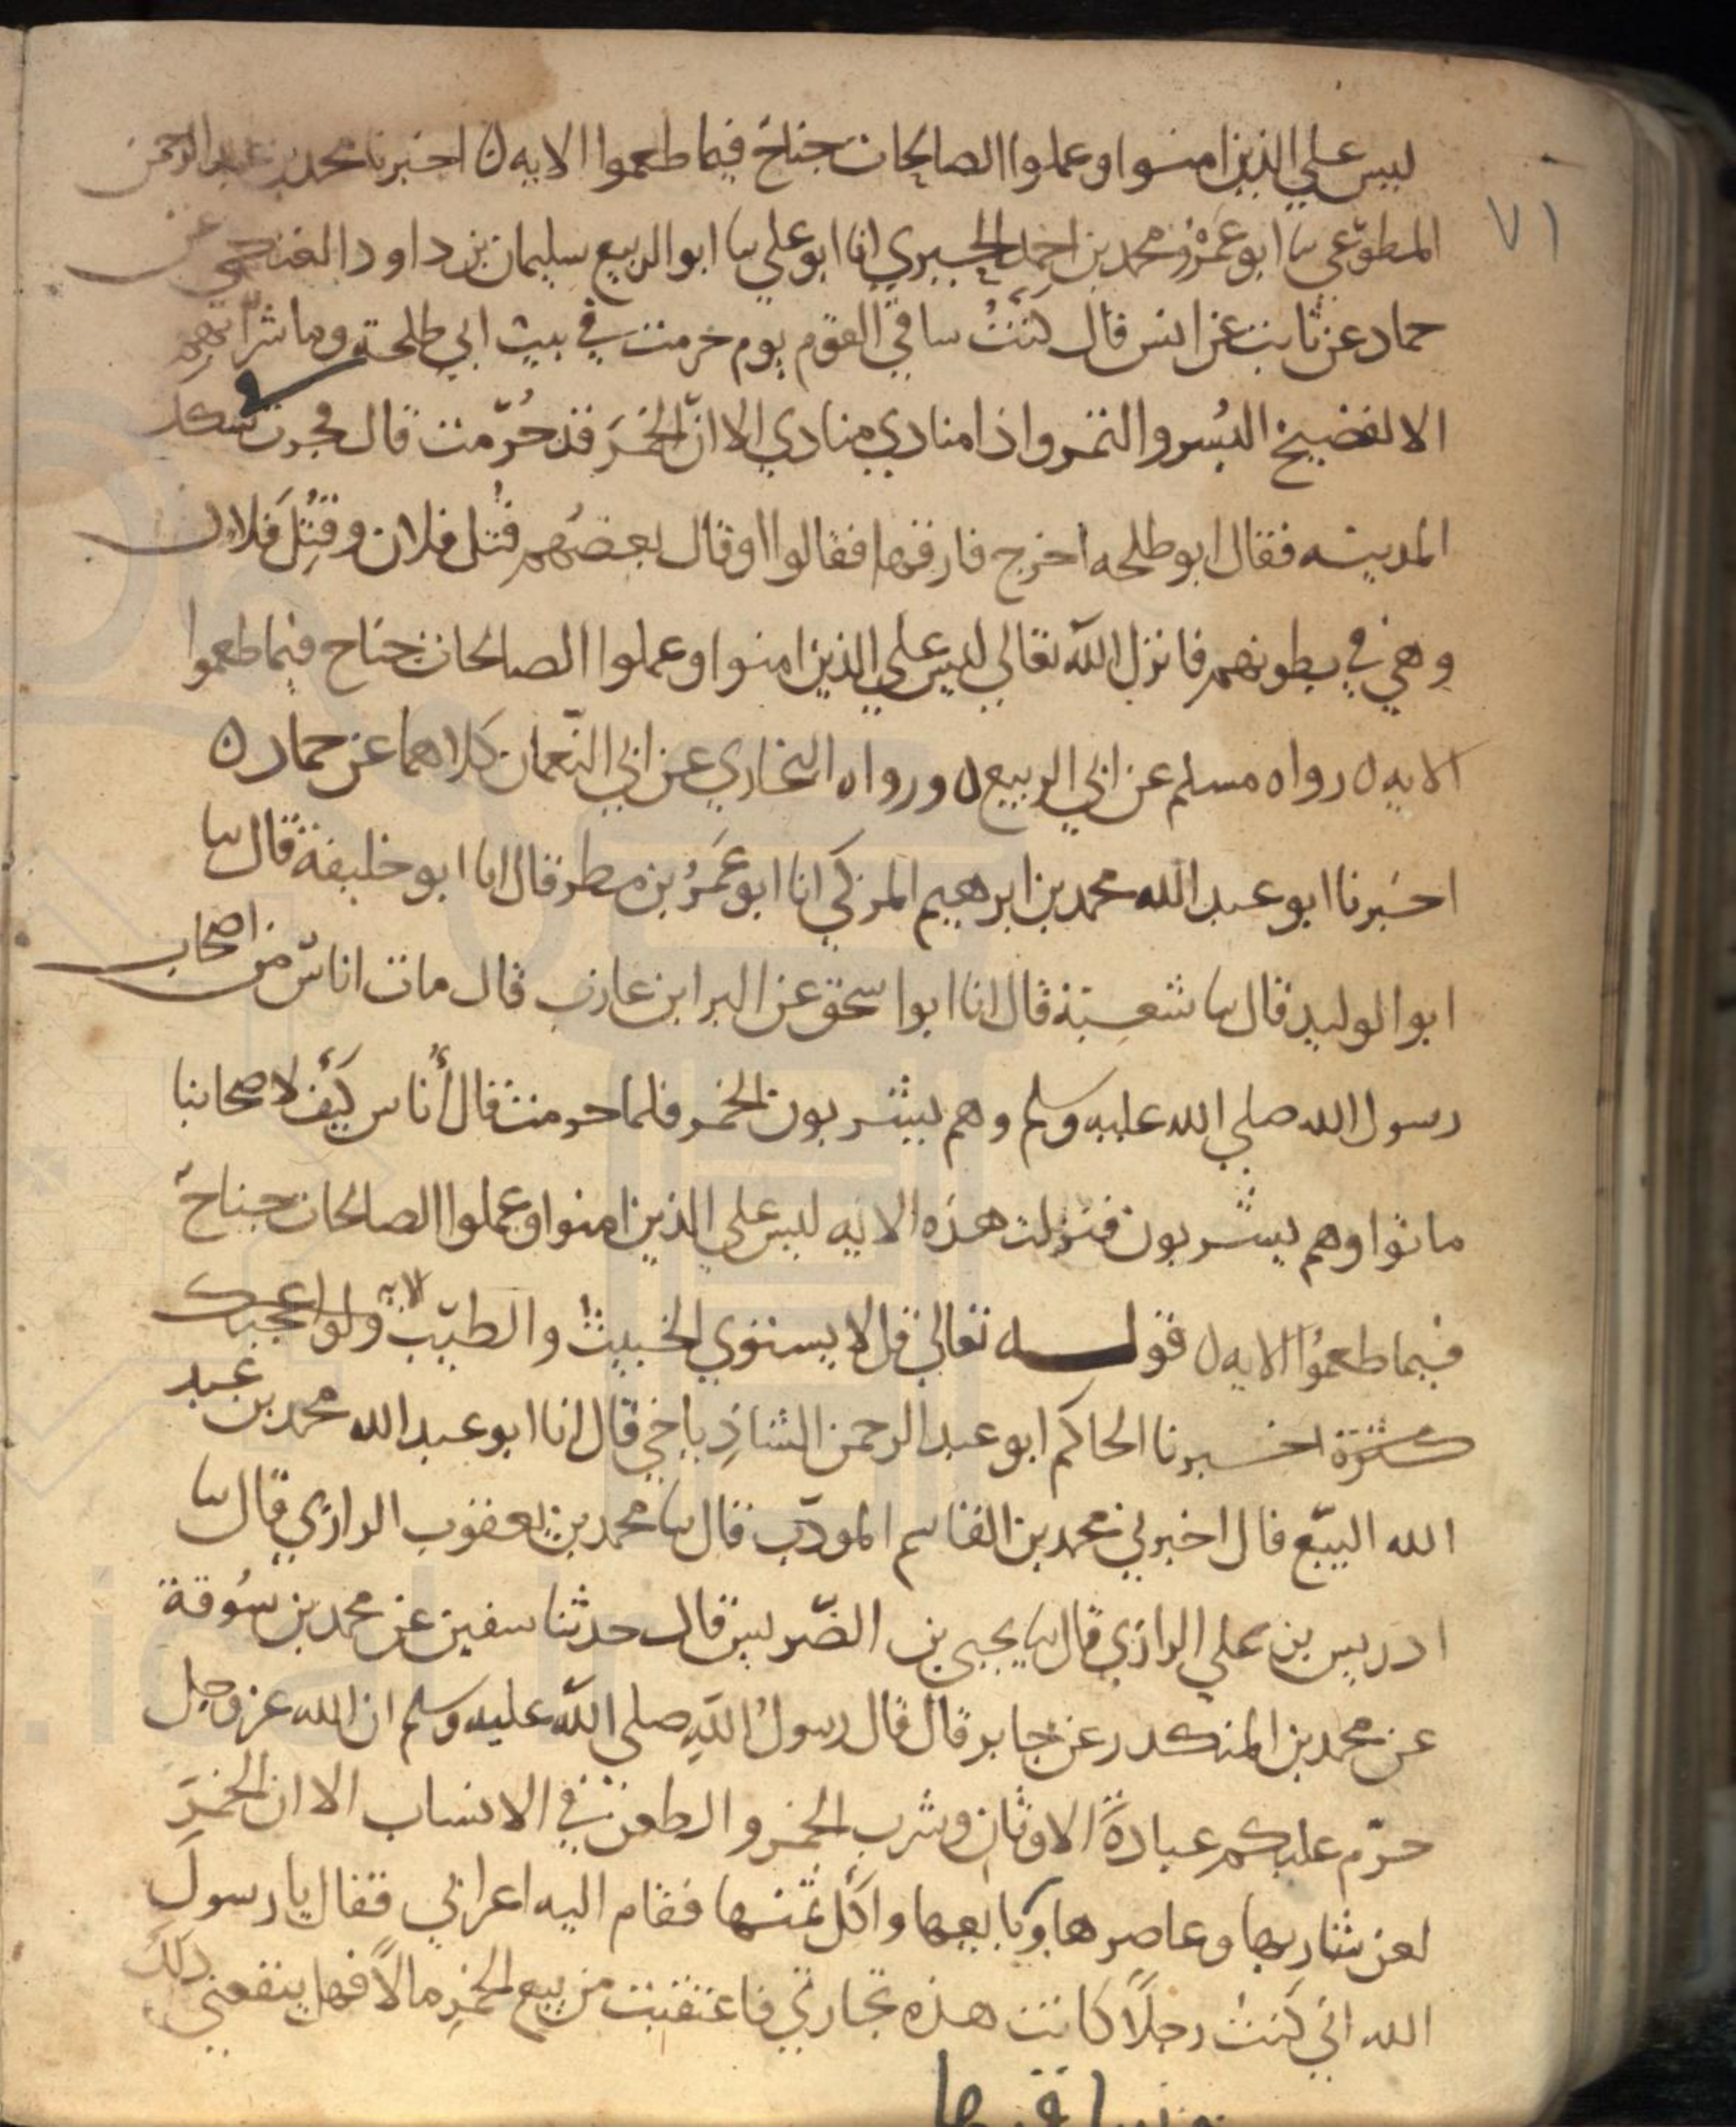 ليس علي الذين امنوا وعملوا الصالحات جناح فيما طعموا الايه ن اخبرنا محمد بن عبد الرحمن
٧١
المطوّعي سا ابو عَمْرو محمد بن احمد الحيري انا ابو علي سا ابو الربيع سليمان بن داود العتكي عن
حماد عن ثابت عن انس قال كُنْتُ ساقي القوم يوم حرمت في بيت ابي طلحة وما شرابهم
الا الفضيخ البُسر والتمر واذا منادي ينادي الا انّ الخمرَ قد حُرّمت قال فجرت سكك
المدينه فقال ابو طلحه اخرج فارقها فقالوا او قال بعضهم قُتل فلان وقُتِلَ فلان
وهي في بطونهم فانزل الله تعالي ليس علي الذين امنوا وعملوا الصالحات جناح فيما طعموا
الايه ن رواه مسلم عن ابي الربيع ن ورواه البخاري عن ابي النّعمان كلاهما عن حماد ن
اخبرنا ابو عبد الله محمد بن ابرهيم المزكي انا ابو عَمْرُ بن مطر قال انا ابو خليفة قال سا
ابو الوليد قال سا شعبة قال انا ابو اسحق عن البرا بن عازب قال مات اناسٌ من اصحاب
رسول الله صلي الله عليه وسلم وهم يشربون الخمر فلما حرمت قال أُناس كيف لاصحابنا
ماتوا وهم يشربون فنزلت هذه الايه ليس علي الذين امنوا وعملوا الصالحات جناحٌ
فيما طعمُوا الايه ن قوله تعالي قل لا يستوي الخبيث والطيّب ولو اعجبك الايه
كثرة اخبرنا الحاكم ابو عبد الرحمن الشاذِياخي قال انا ابو عبد الله محمد بن عبد
الله البيّع قال اخبرني محمد بن القاسم المودّب قال سا محمد بن يعقوب الرازي قال سا
ادريس بن علي الرازي قال سا يحيي بن الضّريس قال حدثنا سفين عن محمد بن سُوقة
عن محمد بن المنكدر عن جابر قال قال رسولُ اللهِ صلي الله عليه وسلم ان الله عز وجل
حرّم عليكم عبادةَ الاوثان وشرب الخمر والطعن في الانساب الا ان الخمرَ
لعن شاربها وعاصرها وبايعها واكل ثمنها فقام اليه اعرابي فقال يا رسولَ
الله اني كنت رجلًا كانت هذه تجارتي فاعتقبت من بيع الخمرِ مالًا فهل ينفعني ذلك